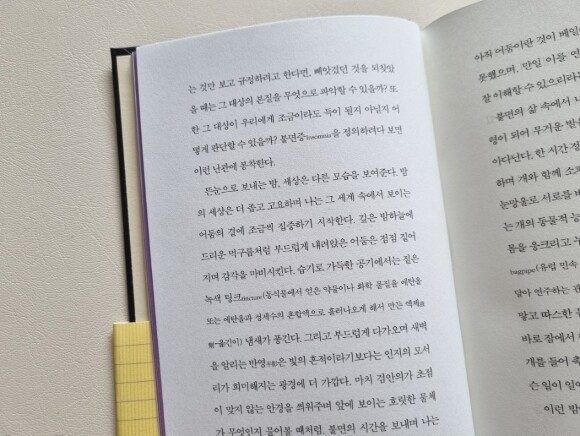 는 것만 보고 규정하려고 한다면, 빼앗겼던 것을 되찾았
을 때는 그 대상의 본질을 무엇으로 파악할 수 있을까? 또
한 그 대상이 우리에게 조금이라도 득이 될지 아닐지 어
떻게 판단할 수 있을까? 불면증insomnia을 정의하려다 보면
이런 난관에 봉착한다.
뜬눈으로 보내는 밤, 세상은 다른 모습을 보여준다. 밤
의 세상은 더 좁고 고요하며 나는 그 세계 속에서 보이는
어둠의 결에 조금씩 집중하기 시작한다. 깊은 밤하늘에
드리운 먹구름처럼 부드럽게 내려앉은 어둠은 점점 짙어
지며 감각을 마비시킨다. 습기로 가득한 공기에서는 짙은
녹색 팅크tincture(동식물에서 얻은 약물이나 화학 물질을 에탄올
또는 에탄올과 정제수의 혼합액으로 흘러나오게 해서 만든 액제
―옮긴이) 냄새가 풍긴다. 그리고 부드럽게 다가오며 새벽
을 알리는 반영은 빛의 흔적이라기보다는 인지의 모서
리가 희미해지는 광경에 더 가깝다. 마치 검안의가 초점
이 맞지 않는 안경을 씌워주며 앞에 보이는 흐릿한 물체
가 무엇인지 물어볼 때처럼. 불면의 시간을 보내며 나는
아직 어둠이란 것이 베일
못했으며, 만일 이를 연
잘 이해할 수 있으리라
불면의 삶 속에서
령이 되어 무거운 발
아다닌다. 한 시간 정
하며 개와 함께 소파
눈망울로 서로를
는 개의 동물적
몸을 웅크리고
bagpipe(유럽 민속
달아 연주하는
맡고 따스한
바로 잠에서
개를 들어
슨 일이 일어
이런 밤